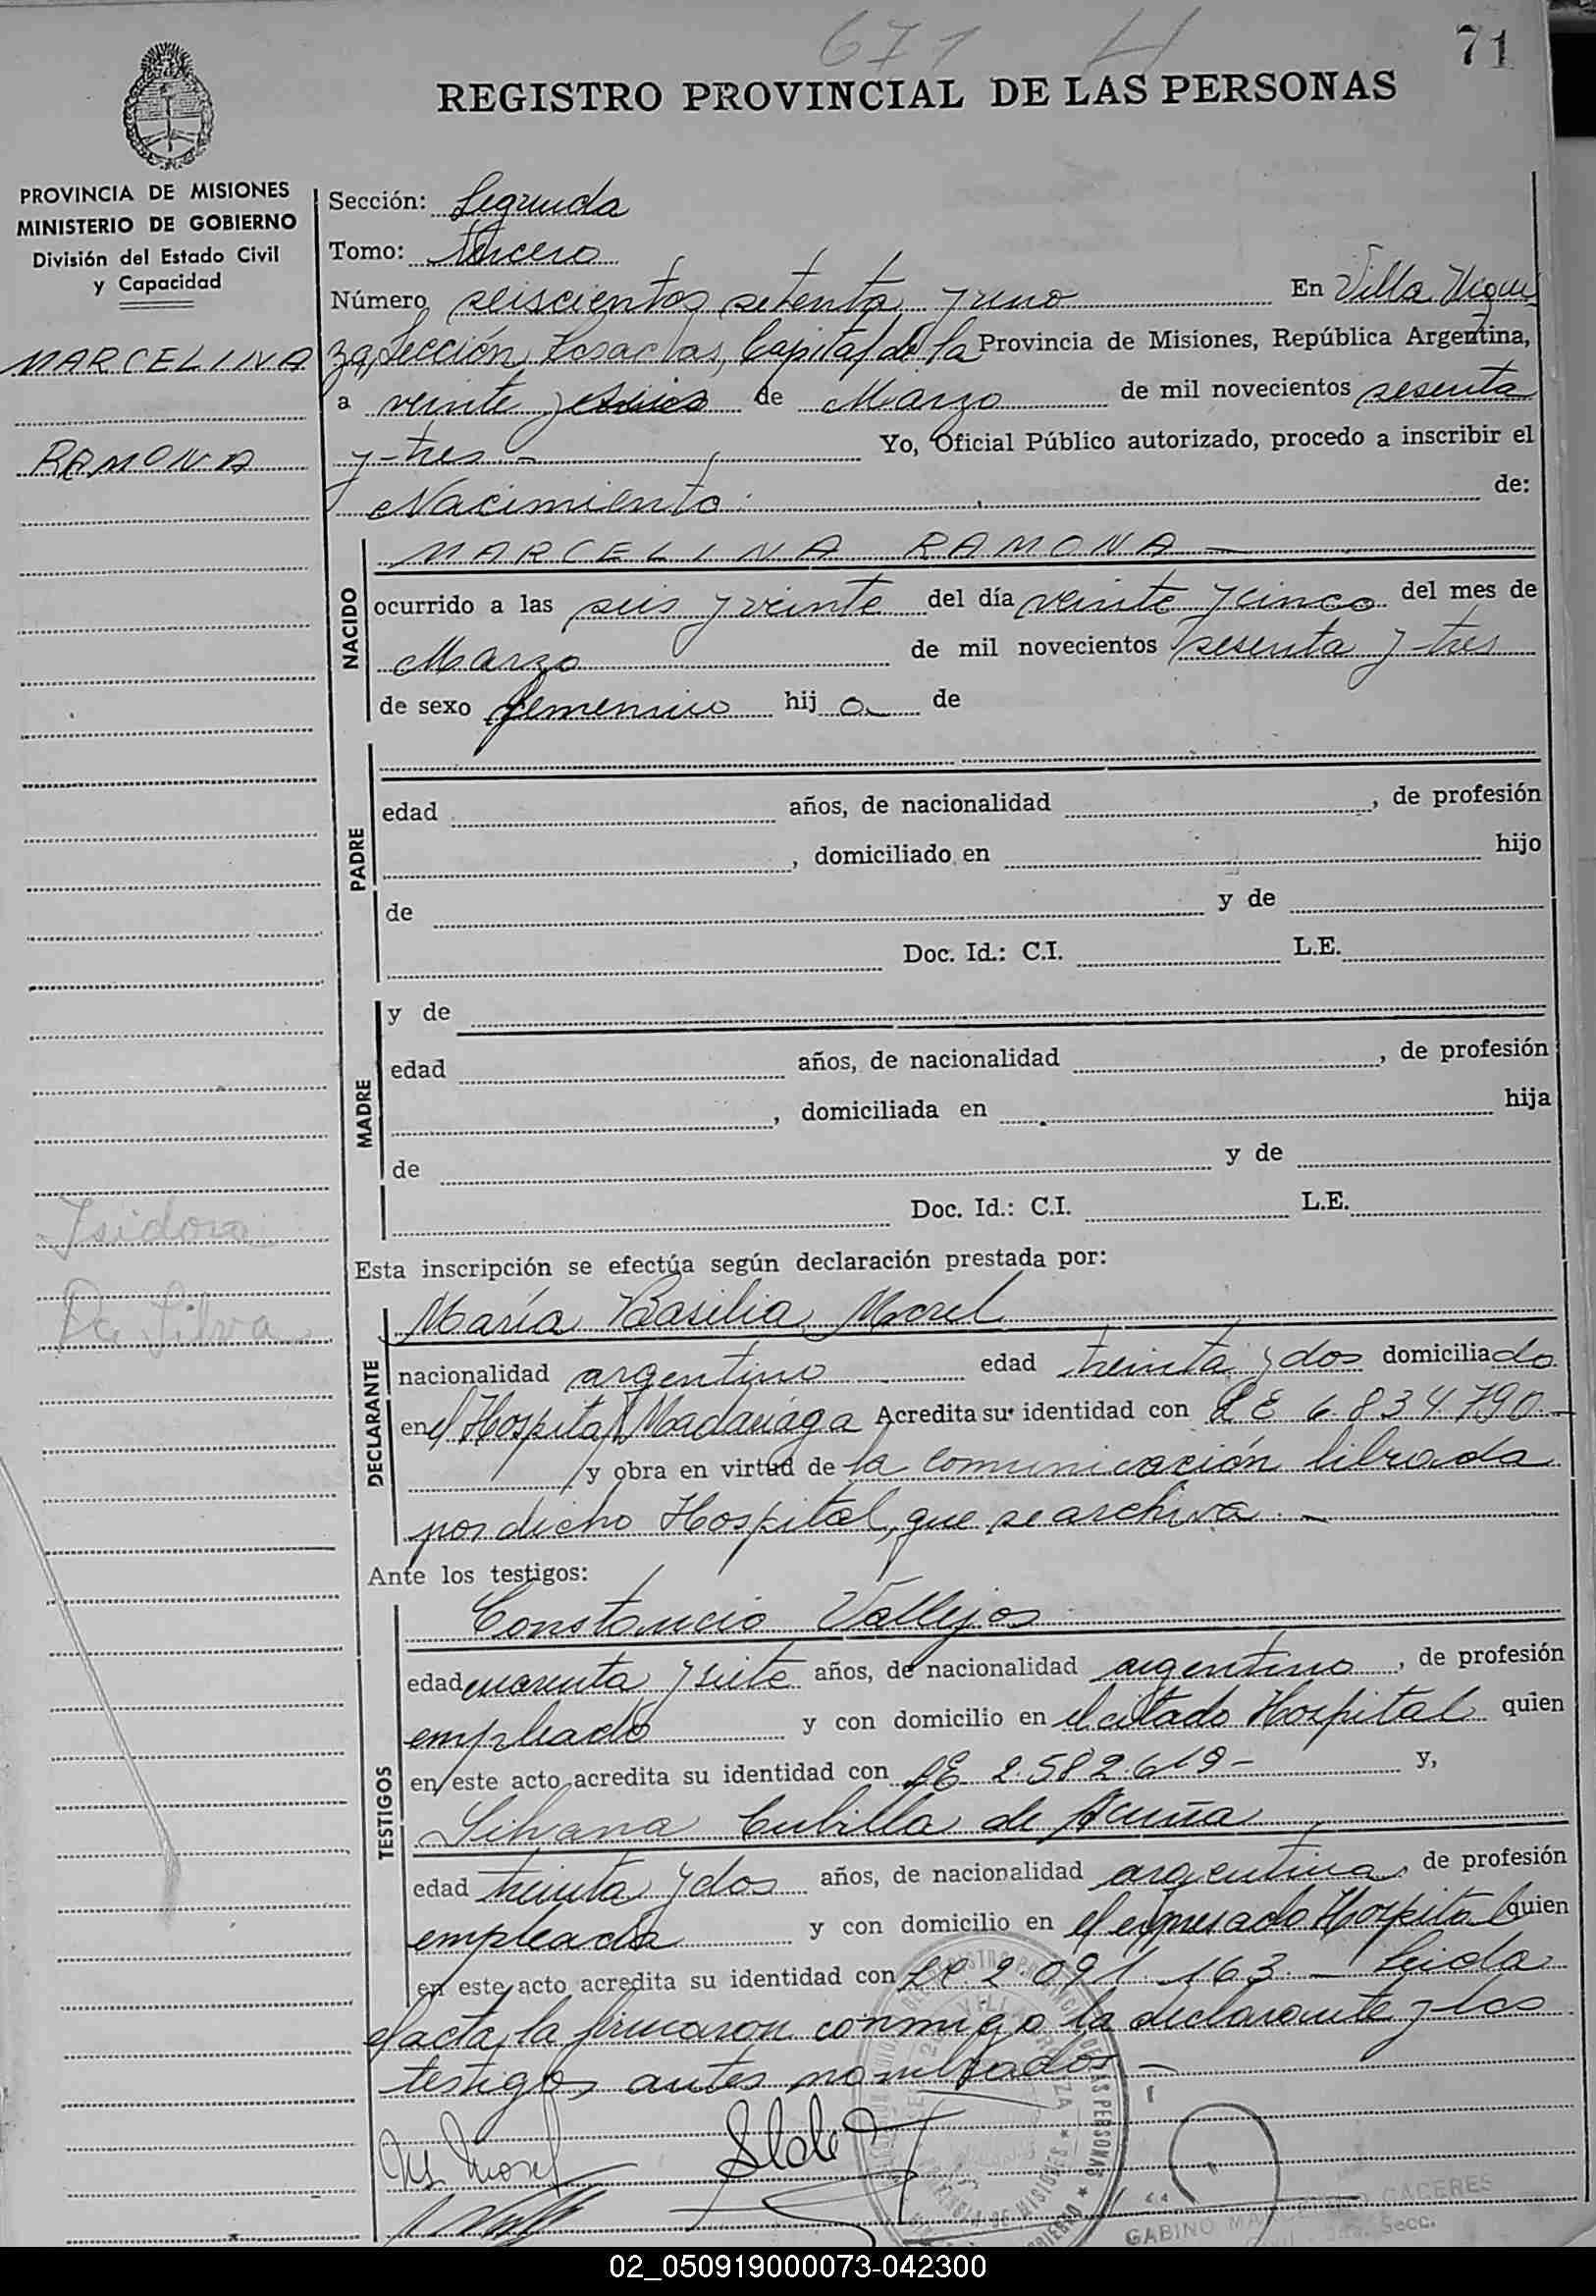 671 H
71
REGISTRO PROVINCIAL DE LAS PERSONAS
PROVINCIA DE MISIONES
MINISTERIO DE GOBIERNO
División del Estado Civil
y Capacidad
MARCELINA
RAMONA
Isidora
Da Silva
Sección: Segunda
Tomo: Tercero
Número seiscientos setenta y uno En Villa Urqui
za, Sección, Posadas, Capital de la Provincia de Misiones, República Argentina,
a veinte y seis de Marzo de mil novecientos sesenta
y tres.- Yo, Oficial Público autorizado, procedo a inscribir el
Nacimiento: de:
NACIDO
MARCELINA RAMONA -
ocurrido a las seis y veinte del día veinte y cinco del mes de
Marzo de mil novecientos sesenta y tres
de sexo femenino hij a de
PADRE
edad años, de nacionalidad , de profesión
, domiciliado en hijo
de y de
Doc. Id.: C.I. L.E.
MADRE
y de
edad años, de nacionalidad , de profesión
, domiciliada en hija
de y de
Doc. Id.: C.I. L.E.
Esta inscripción se efectúa según declaración prestada por:
DECLARANTE
María Basilia Morel
nacionalidad argentino edad treinta y dos domiciliado
en el Hospital Madariaga Acredita su identidad con LE 6.834.790.-
y obra en virtud de la comunicación librada
por dicho Hospital, que se archiva.-
Ante los testigos:
TESTIGOS
Constancio Vallejos
edad cuarenta y siete años, de nacionalidad argentino, de profesión
empleado y con domicilio en el citado Hospital quien
en este acto acredita su identidad con LE 2.582.619- y,
Silvana Cubilla de Acuña
edad treinta y dos años, de nacionalidad argentina, de profesión
empleada y con domicilio en el expresado Hospital quien
en este acto acredita su identidad con LC 2.091.163.- Leida
el acta, la firmaron conmigo la declarante y los
testigos antes nombrados.-
M. Morel
GABINO CACERES
Secc.
02_050919000073-042300